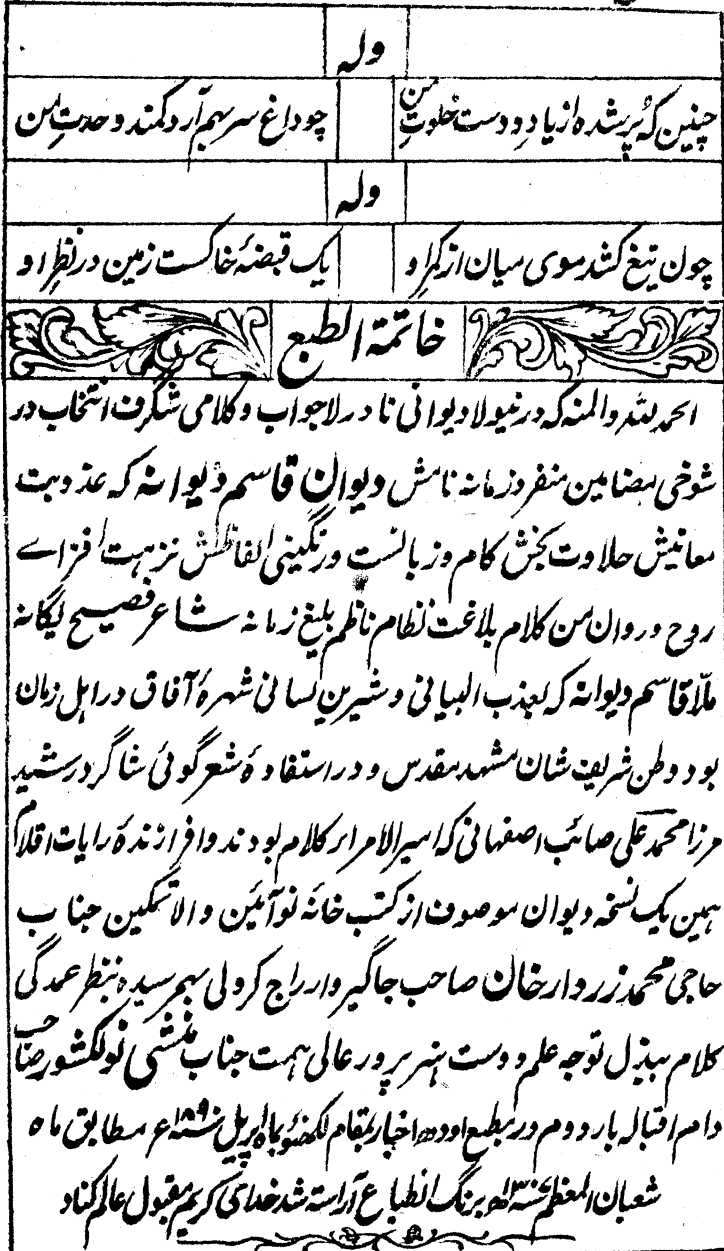 وله
چنین که پُر شده از یادِ دوست خلوتِ من چو داغ سر بهم آرد کمند وحدتِ من
وله
چون تیغ کشد موی میان از کمرِ او یک قبضهٔ خاکست زمین در نظرِ او
خاتمة الطبع
الحمد لله والمنه که درنیولا دیوانی نادر لاجواب و کلامی شگرف انتخاب در
شوخی مضامین منفرد زمانه نامش دیوان قاسم دیوانه که عذوبت
معانیش حلاوت بخش کام و زبانست ورنگینی الفاظش نزهت افزاے
روح و روان من کلام بلاغت نظام ناظم بلیغ زمانه شاعر فصیح یگانه
ملّا قاسم دیوانه که بعذب البیانی و شیرین لسانی شهرهٔ آفاق در اهل زمان
بود و وطن شریف شان مشهد مقدس و در استفادهٔ شعر گوئی شاگرد رشید
مرزا محمد علی صائب اصفهانی که امیر الامراء کلام بودند و افرازندهٔ رایات اقلام
همین یک نسخه دیوان موصوف از کتب خانهٔ نو آئین والا تمکین جناب
حاجی محمد زردار خان صاحب جاگیردار راج کرولی بهم رسیده بنظر عمدگی
کلام ببذل توجه علم دوست هنر پرور عالی همت جناب منشی نولکشور صاحب
دام اقباله بار دوم در مطبع اودھ اخبار بمقام لکھنؤ بماه اپریل سنه ۱۸۹۰ع مطابق ماه
شعبان المعظم سنه ۱۳۰۷ھ برنگ انطباع آراسته شد خدای کریم مقبول عالم کناد